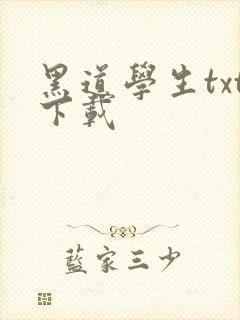 黑道學生txt
下載
藍家三少